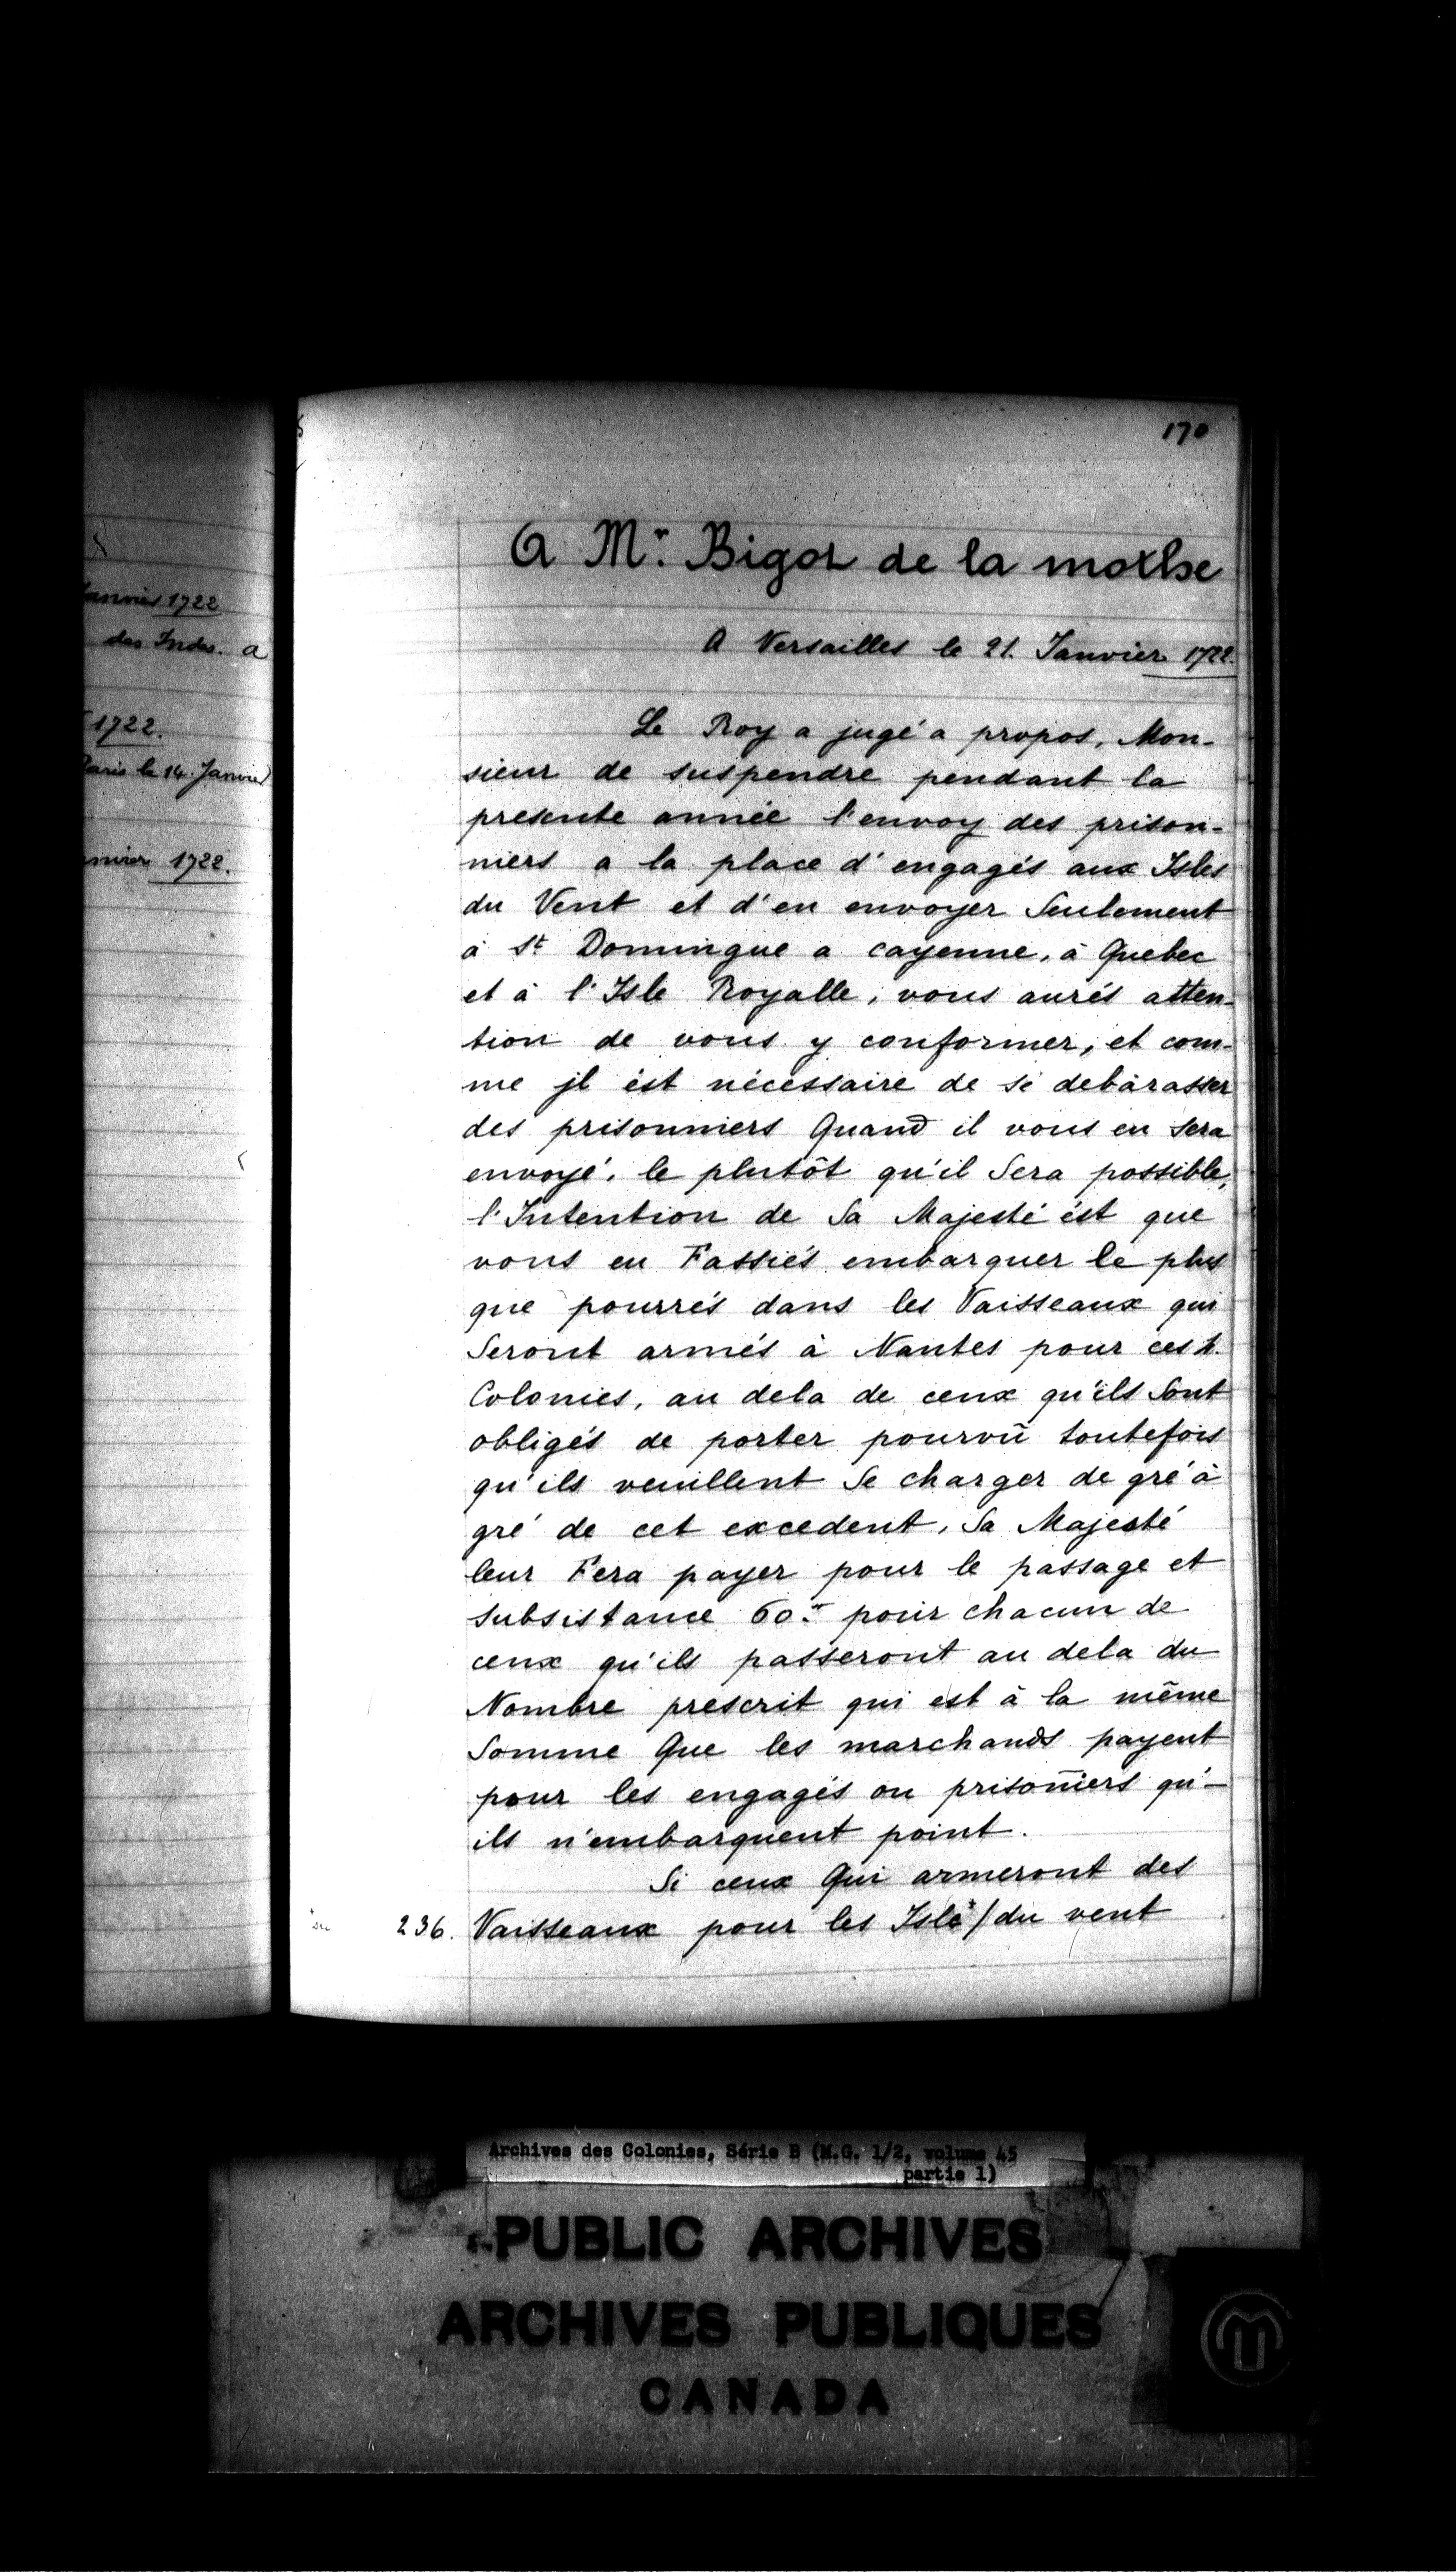 170
A Mr. Bigot de la mothe
A Versailles le 21. Janvier 1722.
Le Roy a jugé a propos, Mon-
sieur de suspendre pendant la
presente année l'envoy des prison-
niers a la place d'engagés aux Isles
du Vent et d'en envoyer Seulement
à St Domingue a cayenne, à Quebec
et à l'Isle Royalle, vous aurés atten-
tion de vous y conformer, et com-
me jl ést nécessaire de sé debàrasser
des prisonniers Quand il vous en sera
envoyé, le plutôt qu'il Sera possible,
l'Intention de Sa Majesté ést que
vous en Fassiés embarquer le plus
que pourrés dans les Vaisseaux qui
Seront armés à Nantes pour ces 4.
Colonies, au dela de ceux qu'ils Sont
obligés de porter pourvû toutefois
qu'ils veuillent Se charger de gré à
gré de cet excedent, Sa Majesté
leur Fera payer pour le passage et
subsistance 60.tt pour chacun de
ceux qu'ils passeront au dela du
Nombre prescrit qui est à la même
Somme Que les marchands payent
pour les engagés ou prisoñiers qu'-
ils n'embarquent point.
Si ceux Qui armeront des
236. Vaisseaux pour les Isles/du vent
Janvier 1722
des Indes. a
1722.
Paris le 14. Janvier
1722.
Archives des Colonies, Série B (M.G. 1/2, volume 45
partie 1)
PUBLIC ARCHIVES
ARCHIVES PUBLIQUES
CANADA